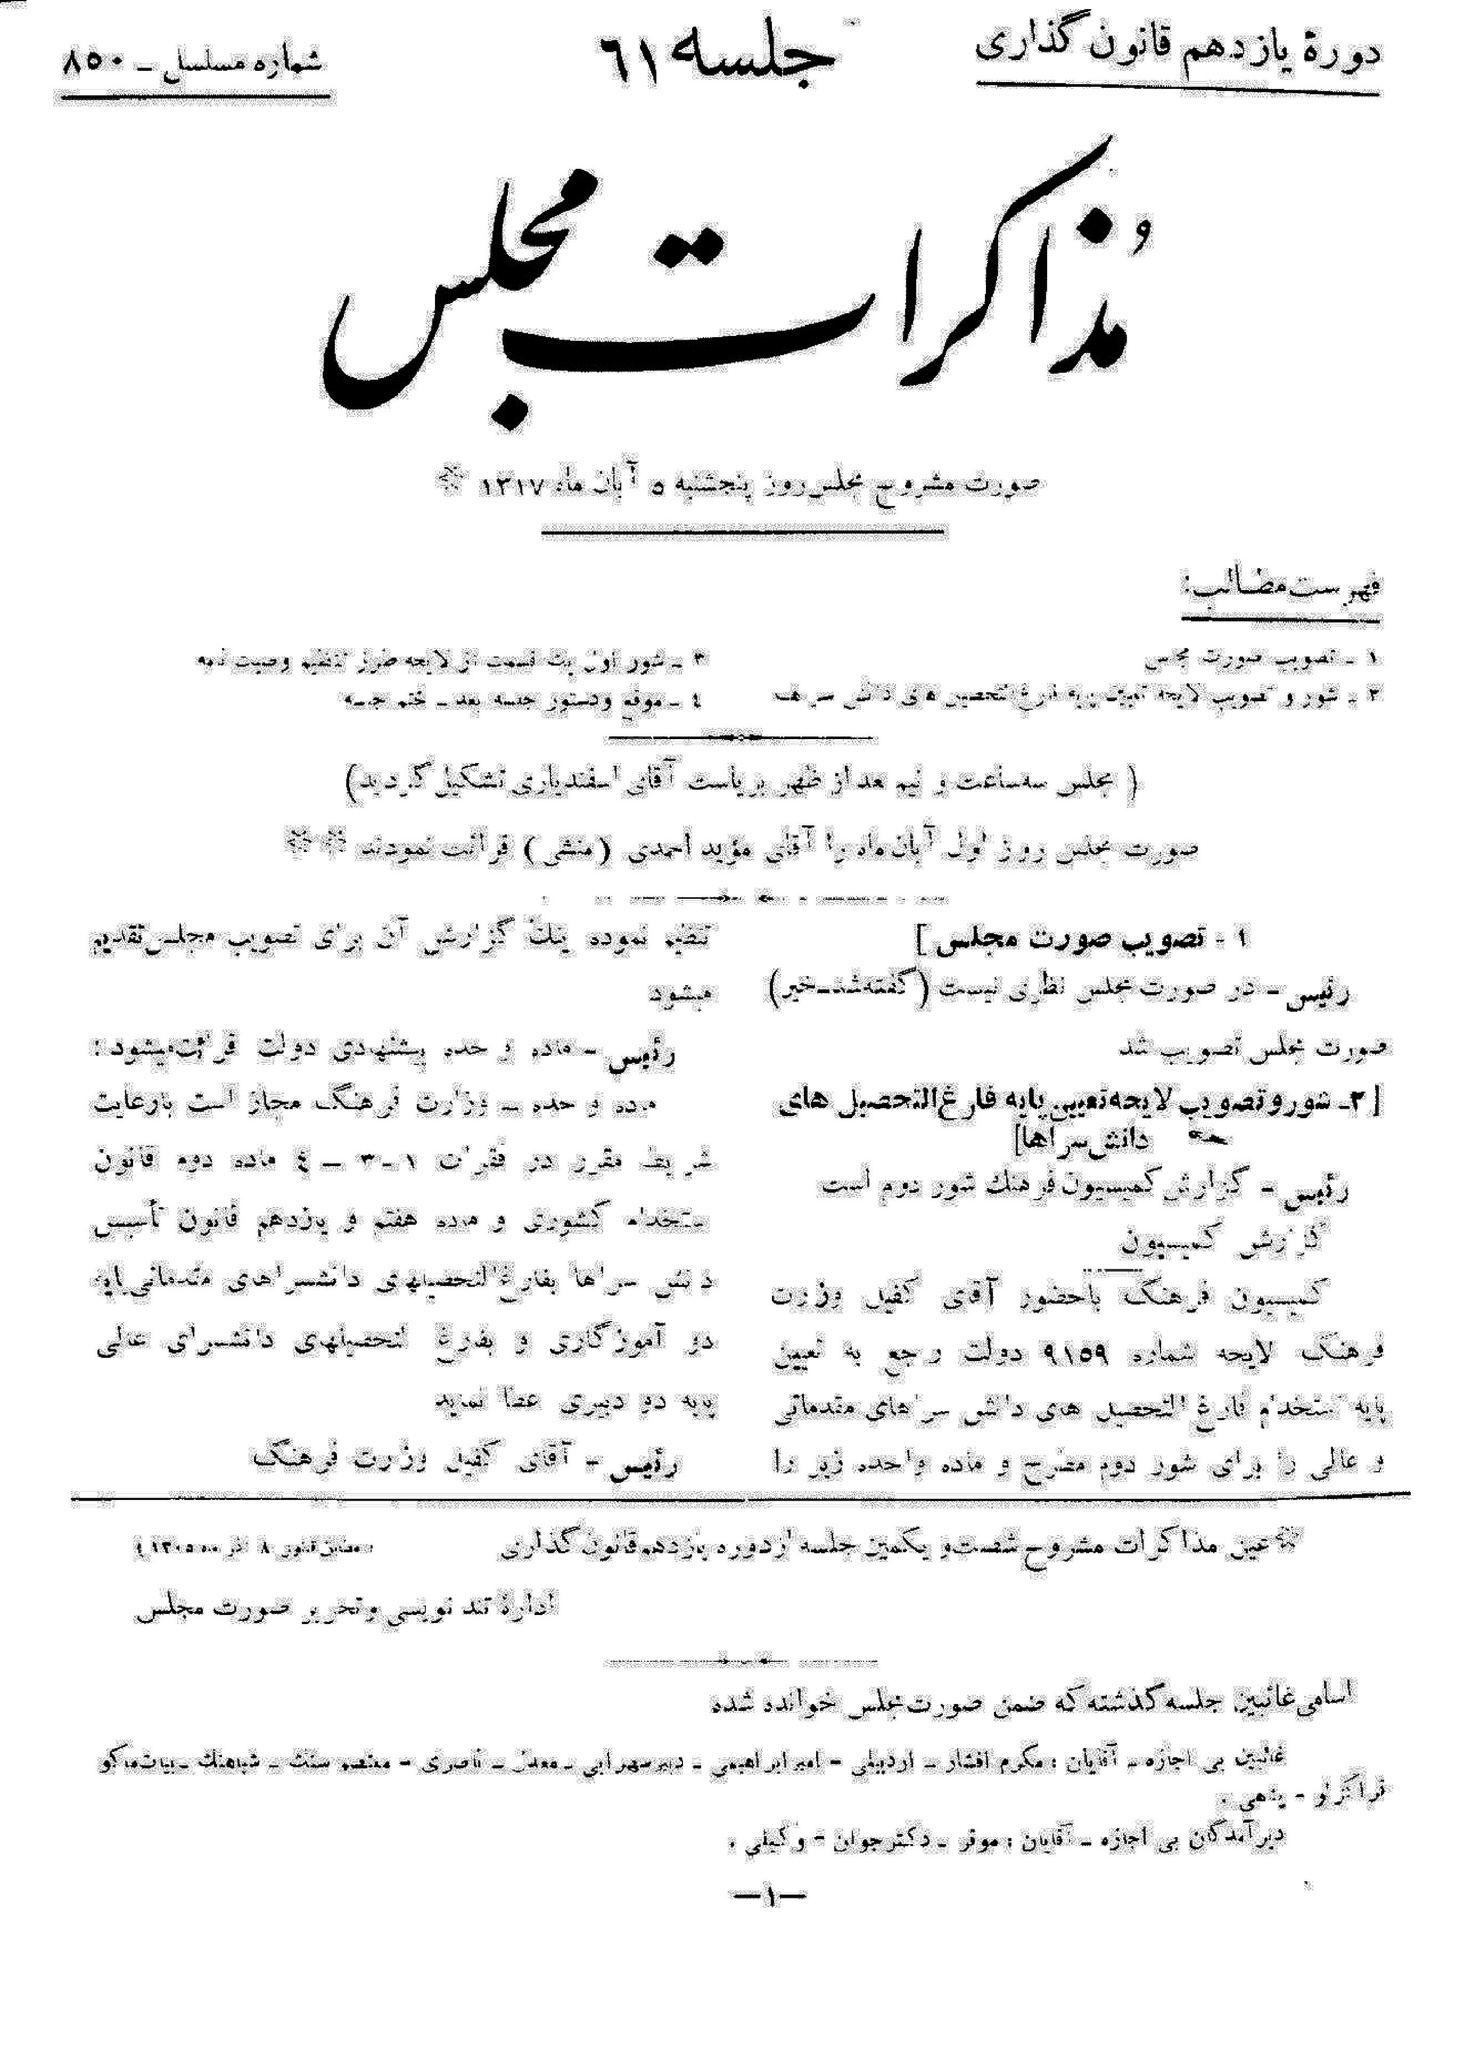 دورهٔ یازدهم قانون گذاری
جلسه ٦١
شماره مسلسل ـ ٨٥٠
مُذاکرات مجلس
صورت مشروح مجلس روز پنجشنبه ٥ آبان ماه ١٣١٧ *
فهرست مطالب:
١ ـ تصویب صورت مجلس
٢ ـ شور و تصویب لایحه تعیین پایه فارغ‌التحصیل های دانش سراها
٣ ـ شور اول یک قسمت از لایحه طرز تنظیم وصیت نامه
٤ ـ موقع و دستور جلسه بعد ـ ختم جلسه
( مجلس سه‌ساعت و نیم بعد از ظهر بریاست آقای اسفندیاری تشکیل گردید)
صورت مجلس روز اول آبان‌ماه را آقای مؤید احمدی (منشی) قرائت نمودند **
١ - تصویب صورت مجلس ]
رئیس - در صورت مجلس نظری نیست (گفته‌شد-خیر)
صورت مجلس تصویب شد
[ ٢- شور و تصویب لایحه تعیین پایه فارغ‌التحصیل های
دانش سراها]
رئیس - گزارش کمیسیون فرهنگ شور دوم است
گزارش کمیسیون
کمیسیون فرهنگ باحضور آقای کفیل وزارت
فرهنگ لایحه شماره ٩١٥٩ دولت راجع به تعیین
پایه استخدام فارغ التحصیل های دانش سراهای مقدماتی
و عالی را برای شور دوم مطرح و ماده واحده زیر را
تنظیم نموده اینک گزارش آن برای تصویب مجلس تقدیم
میشود
رئیس - ماده واحده پیشنهادی دولت قرائت میشود :
ماده واحده ـ وزارت فرهنگ مجاز است بارعایت
شرایط مقرر در فقرات ١-٣ - ٤ ماده دوم قانون
استخدام کشوری و ماده هفتم و یازدهم قانون تأسیس
دانش سراها بفارغ‌التحصیلهای دانشسراهای مقدماتی پایه
دو آموزگاری و بفارغ التحصیلهای دانشسرای عالی
پایه دو دبیری عطا نماید
رئیس - آقای کفیل وزارت فرهنگ
* عین مذاکرات مشروح شصت‌و یکمین جلسه از دوره یازدهم قانون گذاری
( مطابق قانون ٨ آذر ماه ١٣٠٥ )
ادارهٔ تند نویسی و تحریر صورت مجلس
اسامی غائبین جلسه گذشته که ضمن صورت مجلس خوانده شده
غائبین بی اجازه ـ آقایان : مکرم افشار ـ اردبیلی - امیرابراهیمی ـ دبیرسهرابی ـ معدل ـ ناصری - معتصم سنگ ـ شباهنگ ـ بیات‌ماکو
قراگزلو - پناهی .
دیرآمدگان بی اجازه ـ آقایان : موقر ـ دکترجوان - وکیلی .
—١—